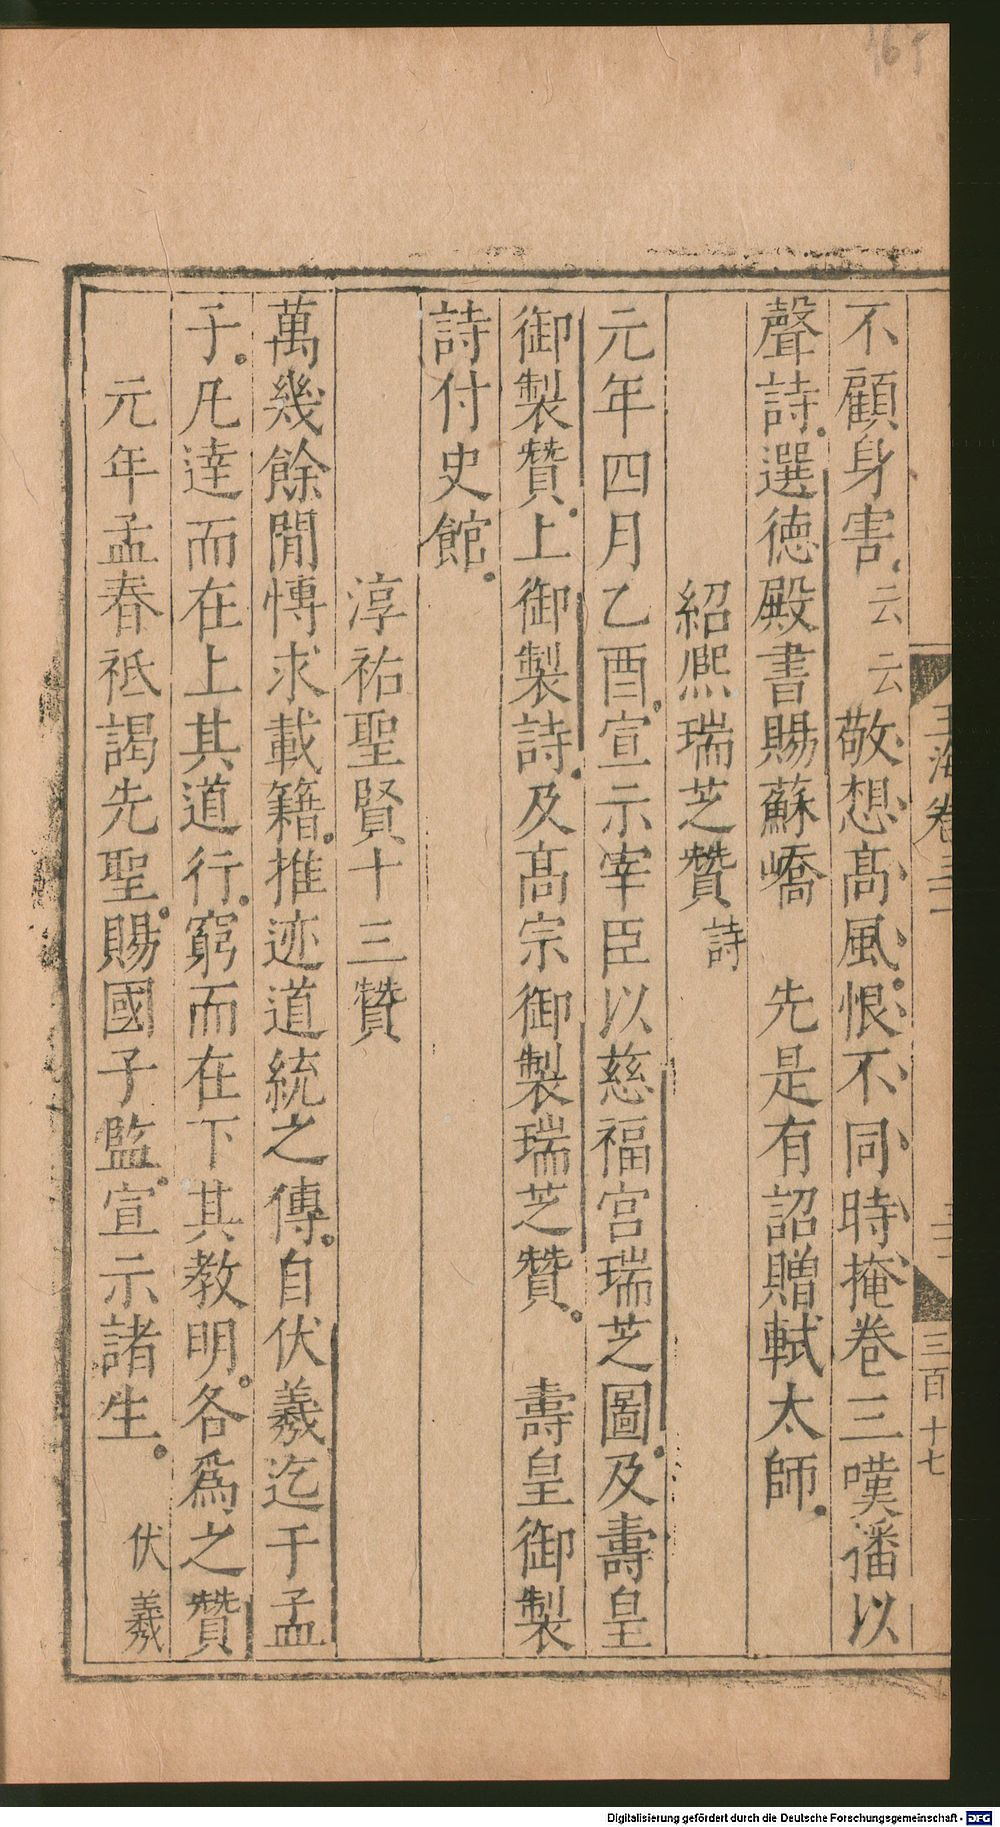 不顧身害云云敬想高風恨不同時掩卷三嘆播以
聲詩選德殿書賜蘇嶠　先是有詔贈軾太師
紹熈瑞芝贊詩
元年四月乙酉宣示宰臣以慈福宮瑞芝圖及壽皇
御製贊上御製詩及高宗御製瑞芝贊　壽皇御製
詩付史館
淳祐聖賢十三贊
萬幾餘閒慱求載籍推迹道統之傳自伏羲迄于孟
子凡達而在上其道行窮而在下其教明各爲之贊
元年孟春祗謁先聖賜國子監宣示諸生　伏羲
玉海卷三十一
三百十七
Digitalisierung gefördert durch die Deutsche Forschungsgemeinschaft - DFG